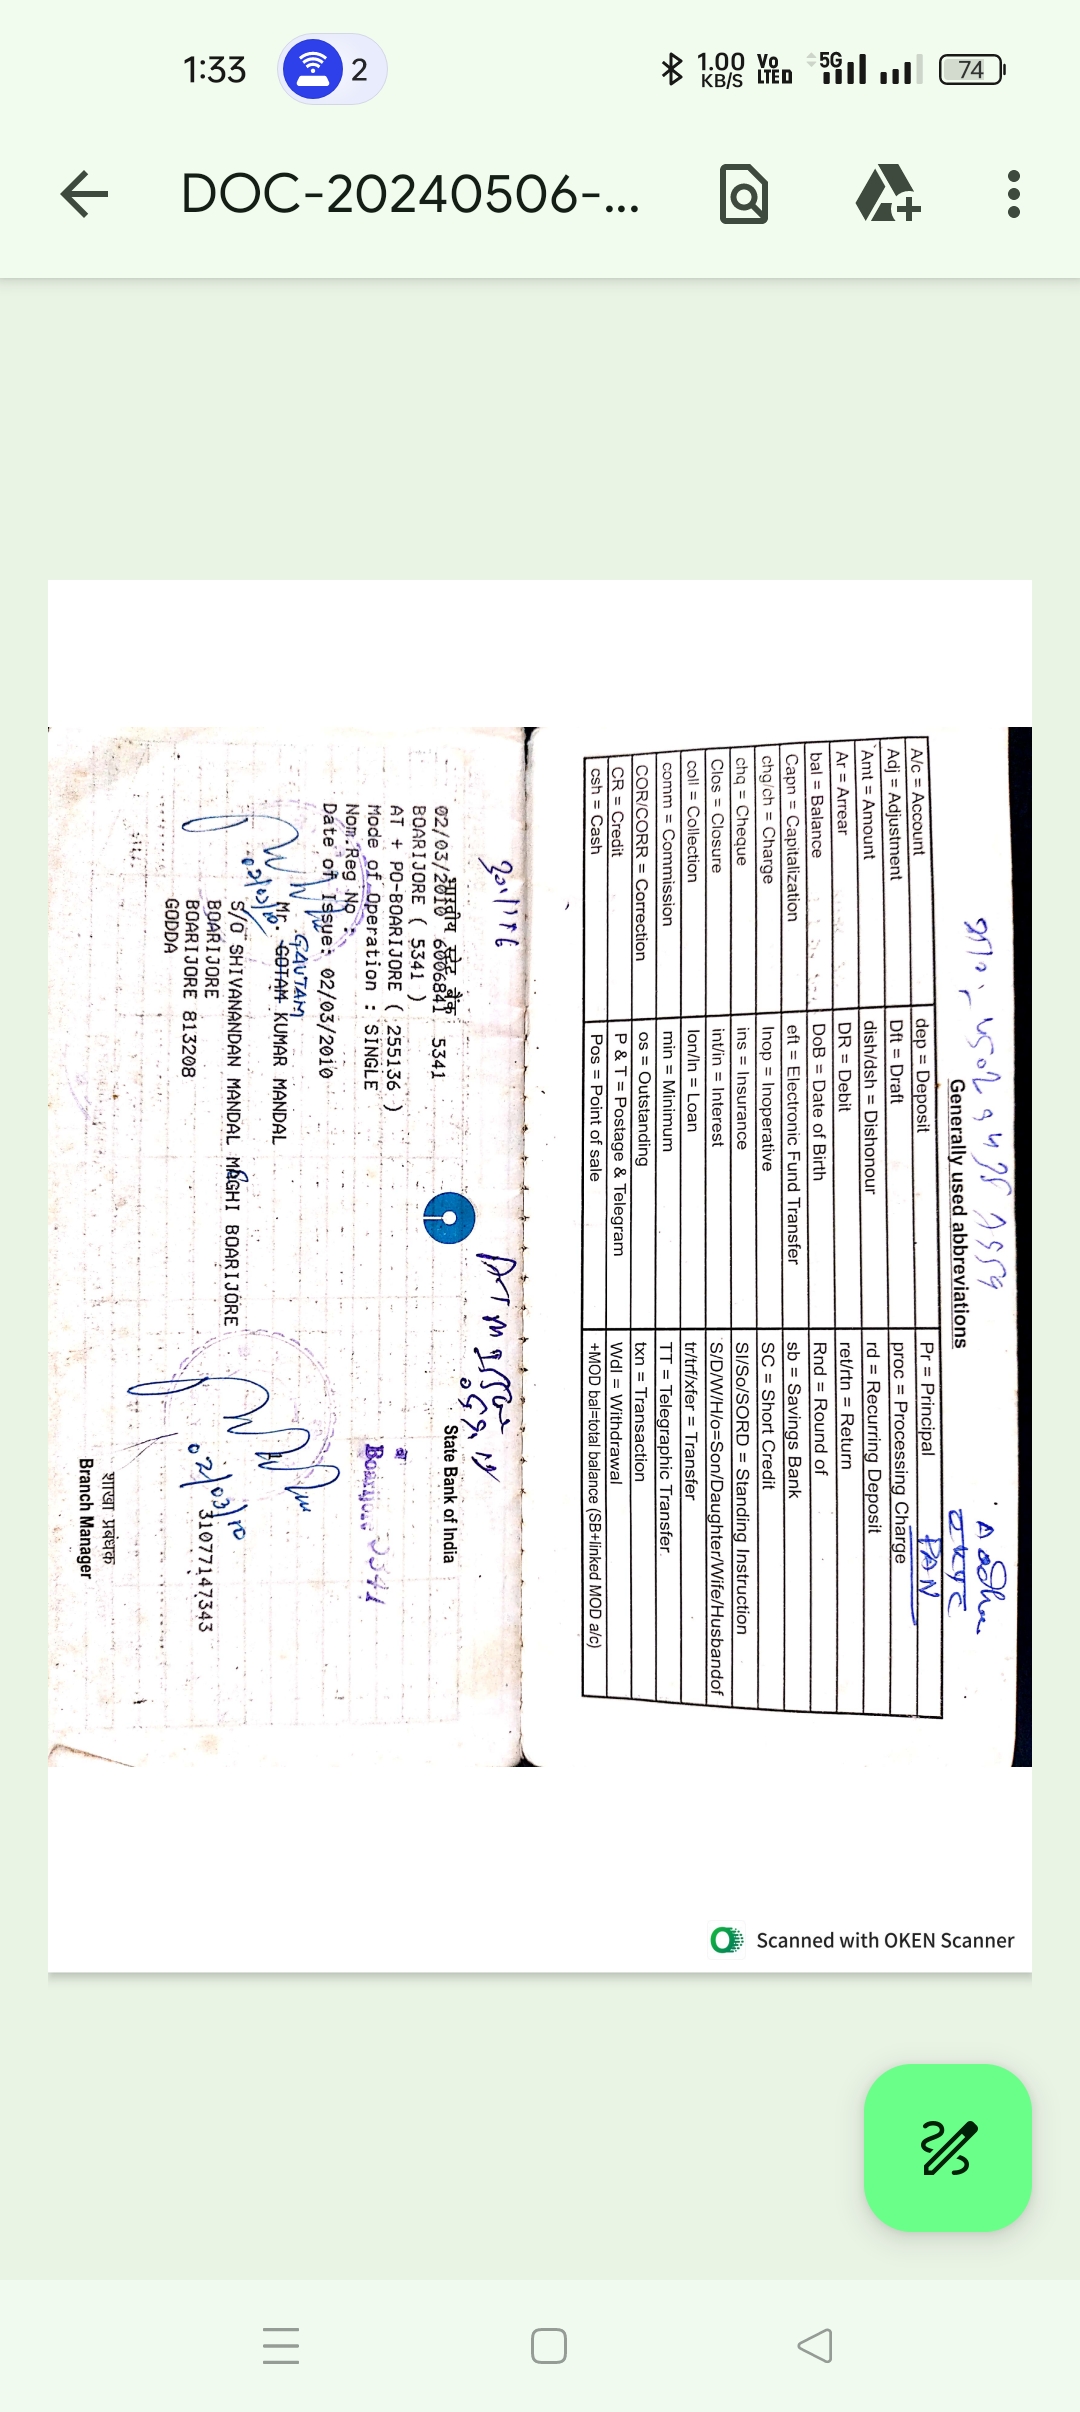 1:33
2
1.00 KB/S
Vo LTED
5G
74
DOC-20240506-...
Aadhar
PAN
Generally used abbreviations
A/c = Account dep = Deposit Pr = Principal
Adj = Adjustment Dft = Draft proc = Processing Charge
Amt = Amount dish/dsh = Dishonour rd = Recurring Deposit
Ar = Arrear DR = Debit ret/rtn = Return
bal = Balance DoB = Date of Birth Rnd = Round of
Capn = Capitalization eft = Electronic Fund Transfer sb = Savings Bank
chg/ch = Charge Inop = Inoperative SC = Short Credit
chq = Cheque ins = Insurance SI/So/SORD = Standing Instruction
Clos = Closure int/in = Interest S/D/W/H/o=Son/Daughter/Wife/Husbandof
coll = Collection lon/ln = Loan tr/trf/xfer = Transfer
comm = Commission min = Minimum TT = Telegraphic Transfer.
COR/CORR = Correction os = Outstanding txn = Transaction
CR = Credit P & T = Postage & Telegram Wdl = Withdrawal
csh = Cash Pos = Point of sale +MOD bal=total balance (SB+linked MOD a/c)
भारतीय स्टेट बैंक State Bank of India
02/03/2010 6006841 5341
BOARIJORE ( 5341 )
AT + PO-BOARIJORE ( 255136 )
Mode of Operation : SINGLE
Nom.Reg No :
Date of Issue: 02/03/2010
GAUTAM
Mr. GOTAM KUMAR MANDAL
02/03/10
S/O SHIVANANDAN MANDAL MAGHI BOARIJORE
02/03/10
BOARIJORE 31077147343
BOARIJORE 813208
GODDA
शाखा प्रबंधक
Branch Manager
Scanned with OKEN Scanner